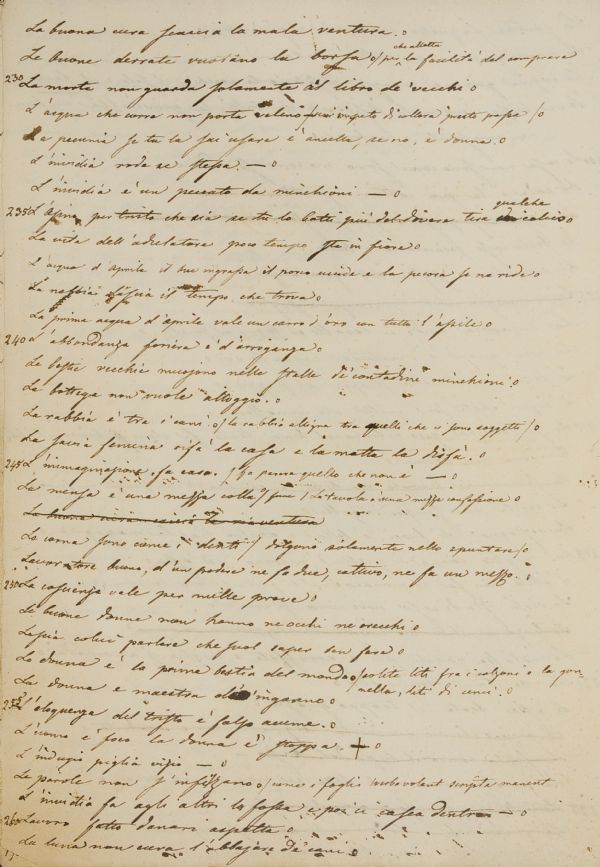 La buona cura scaccia la mala ventura. o
che alletta
Le buone derrate vuotano la borsa o/ per la facilità del comprare
230 La morte non guarda solamente al libro de' vecchi o
L'acqua che corre non porta veleno impeto di collera presto passa / o
La pecunia se tu la sai usare è ancella, se no, è donna. o
L'invidia rode se stessa. — o
L'invidia è un peccato da minchioni — o
qualche
235 L'asino per tristo che sia se tu lo batti più del dovere tira calcio o
La vita dell'adulatore poco tempo sta in fiore o
L'acqua d'aprile il bue ingrassa il porco uccide e la pecora se ne ride o
La nebbia lascia il tempo che trova o
La prima acqua d'aprile vale un carro d'oro con tutto l'assile o
240 L'abbondanza foriera è d'arroganza o
Le bestie vecchie muojono nelle stalle de' contadini minchioni. o
La bottega non vuole alloggio. o
La rabbia è tra i cani. o/ la rabbia alligna tra quelli che si sono soggetti / o
La savia femina rifà la casa e la matta la disfà. o
245 L'immaginazione fa caso. / fa parere quello che non è — o
La mensa è una mezza colla / La tavola è una mezza confessione o
La buona cura scaccia la ria ventura
Le corna sono come i denti / dolgono solamente nello spuntare / o
Lavoratore buono, d'un podere ne fa due, cattivo, ne fa un mezzo. o
250 La coscienza vale per mille prove o
Le buone donne non hanno ne occhi ne orecchi o
Lascia colui parlare che suol saper ben fare o
La donna è la prima bestia del mondo o/ solite liti fra i calzoni e la gon-
La donna è maestra d'inganno o nella, liti di cenci. o
255 L'eloquenza del tristo è falso acume. o
L'uomo è foco la donna è stoppa. + o
L'indugio piglia vizio — o
Le parole non s'infilzano o/ come i foglie / verba volant scripta manent
L'invidia fa agli altri la fossa e poi ci casca dentro — o
260 Lavoro fatto danari aspetta o
La luna non cura l'abbajare de' cani o